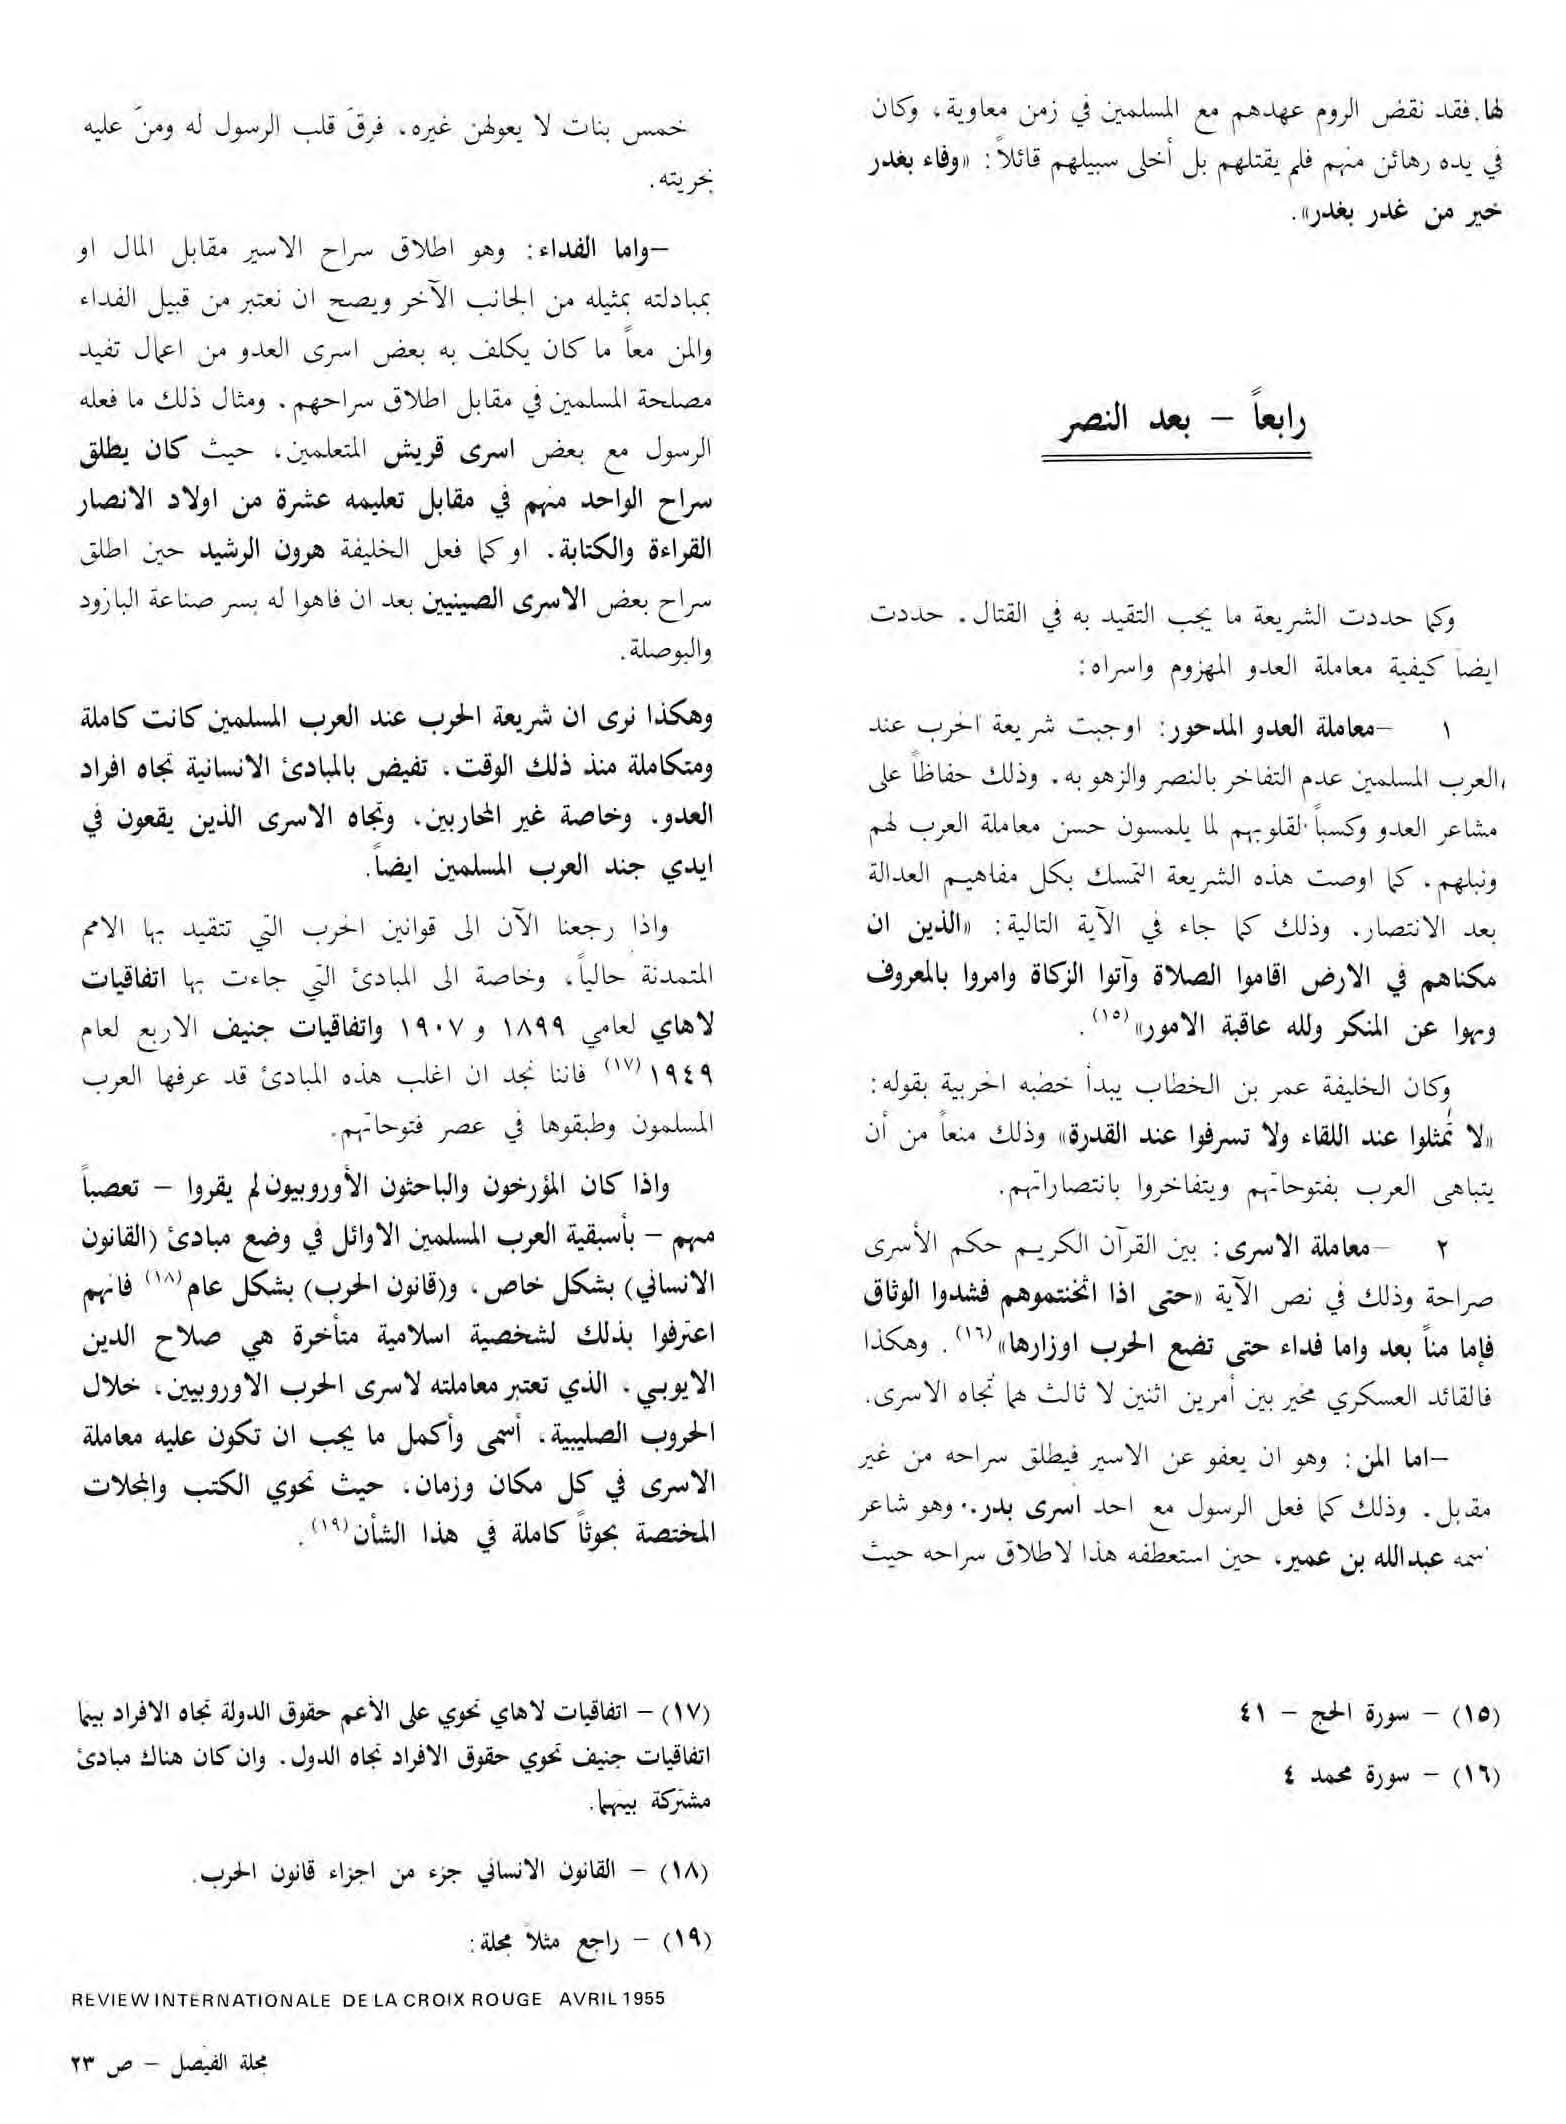 لها. فقد نقض الروم عهدهم مع المسلمين في زمن معاوية، وكان
في يده رهائن منهم فلم يقتلهم بل أخلى سبيلهم قائلاً: «وفاء بغدر
خير من غدر بغدر».
رابعاً – بعد النصر
وكما حددت الشريعة ما يجب التقيد به في القتال. حددت
ايضاً كيفية معاملة العدو المهزوم واسراه:
١ –معاملة العدو المدحور: اوجبت شريعة الحرب عند
العرب المسلمين عدم التفاخر بالنصر والزهو به. وذلك حفاظاً على
مشاعر العدو وكسباً لقلوبهم لما يلمسون حسن معاملة العرب لهم
ونبلهم. كما اوصت هذه الشريعة التمسك بكل مفاهيم العدالة
بعد الانتصار. وذلك كما جاء في الآية التالية: «الذين ان
مكناهم في الارض اقاموا الصلاة وآتوا الزكاة وامروا بالمعروف
ونهوا عن المنكر ولله عاقبة الامور»(١٥).
وكان الخليفة عمر بن الخطاب يبدأ خطبه الحربية بقوله:
«لا تُمثلوا عند اللقاء ولا تسرفوا عند القدرة» وذلك منعاً من أن
يتباهى العرب بفتوحاتهم ويتفاخروا بانتصاراتهم.
٢ –معاملة الاسرى: بين القرآن الكريم حكم الأسرى
صراحة وذلك في نص الآية «حتى اذا اثخنتموهم فشدوا الوثاق
فإما مناً بعد واما فداء حتى تضع الحرب اوزارها»(١٦). وهكذا
فالقائد العسكري مخير بين أمرين اثنين لا ثالث لهما تجاه الاسرى.
–اما المن: وهو ان يعفو عن الاسير فيطلق سراحه من غير
مقابل. وذلك كما فعل الرسول مع احد اسرى بدر. وهو شاعر
اسمه عبدالله بن عمير، حين استعطفه هذا لاطلاق سراحه حيث
(١٥) – سورة الحج – ٤١
(١٦) – سورة محمد ٤
خمس بنات لا يعولهن غيره، فرقّ قلب الرسول له ومنّ عليه
بحريته.
–واما الفداء: وهو اطلاق سراح الاسير مقابل المال او
بمبادلته بمثيله من الجانب الآخر ويصح ان نعتبر من قبيل الفداء
والمن معاً ما كان يكلف به بعض اسرى العدو من اعمال تفيد
مصلحة المسلمين في مقابل اطلاق سراحهم. ومثال ذلك ما فعله
الرسول مع بعض اسرى قريش المتعلمين، حيث كان يطلق
سراح الواحد منهم في مقابل تعليمه عشرة من اولاد الانصار
القراءة والكتابة. او كما فعل الخليفة هرون الرشيد حين اطلق
سراح بعض الاسرى الصينيين بعد ان فاهوا له بسر صناعة البازود
والبوصلة.
وهكذا نرى ان شريعة الحرب عند العرب المسلمين كانت كاملة
ومتكاملة منذ ذلك الوقت، تفيض بالمبادئ الانسانية تجاه افراد
العدو. وخاصة غير المحاربين، وتجاه الاسرى الذين يقعون في
ايدي جند العرب المسلمين ايضاً.
واذا رجعنا الآن الى قوانين الحرب التي تتقيد بها الامم
المتمدنة حالياً، وخاصة الى المبادئ التي جاءت بها اتفاقيات
لاهاي لعامي ١٨٩٩ و ١٩٠٧ واتفاقيات جنيف الاربع لعام
١٩٤٩(١٧) فاننا نجد ان اغلب هذه المبادئ قد عرفها العرب
المسلمون وطبقوها في عصر فتوحاتهم.
واذا كان المؤرخون والباحثون الأوروبيون لم يقروا – تعصباً
منهم – بأسبقية العرب المسلمين الاوائل في وضع مبادئ (القانون
الانساني) بشكل خاص، و(قانون الحرب) بشكل عام(١٨) فانهم
اعترفوا بذلك لشخصية اسلامية متأخرة هي صلاح الدين
الايوبي، الذي تعتبر معاملته لاسرى الحرب الاوروبيين، خلال
الحروب الصليبية، أسمى وأكمل ما يجب ان تكون عليه معاملة
الاسرى في كل مكان وزمان، حيث تحوي الكتب والمجلات
المختصة بحوثاً كاملة في هذا الشأن(١٩).
(١٧) – اتفاقيات لاهاي تحوي على الأعم حقوق الدولة تجاه الافراد بينما
اتفاقيات جنيف تحوي حقوق الافراد تجاه الدول. وان كان هناك مبادئ
مشتركة بينهما.
(١٨) – القانون الانساني جزء من اجزاء قانون الحرب.
(١٩) – راجع مثلاً مجلة:
REVIEW INTERNATIONALE DE LA CROIX ROUGE AVRIL 1955
مجلة الفيصل – ص ٢٣